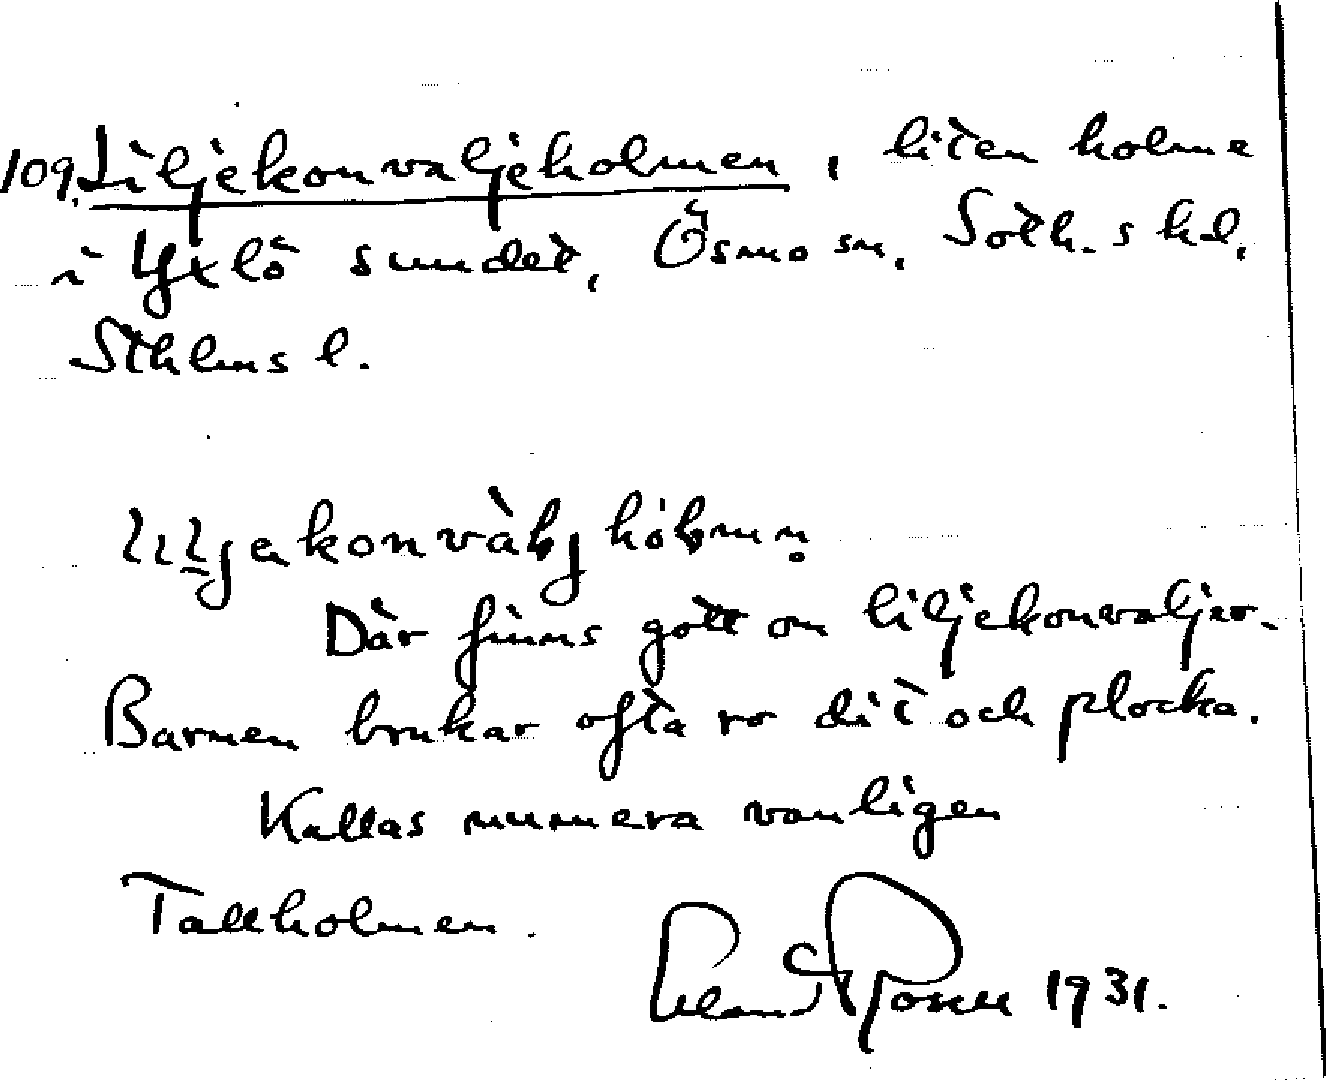 109. Liljekonvaljeholmen, liten holme
i Yxlö sundet, Ösmo sn, Soth.s hd,
Sthlms l.
lıljekonvàljhólmn̥
Där finns gott om liljekonvaljer.
Barnen brukar ofta ro dit och plocka.
Kallas numera vanligen
Tallholmen.
1931.